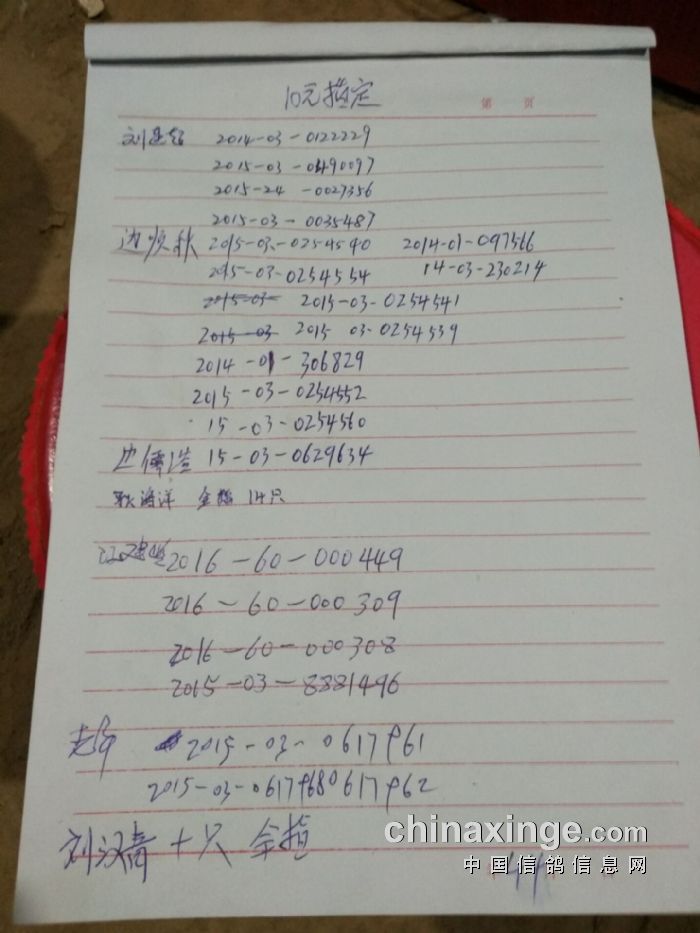 10元指定
第 页
刘 2014-03-0122229
2015-03-0490097
2015-24 -0027356
2015-03-0035487
边 秋 2015-03-0254540 2014-01-097566
2015-03-0254554 14-03-230214
2015-03- 2015-03-0254541
2015-03 2015 03-0254539
2014-01-306829
2015-03-0254552
15-03-0254560
15-03-0629634
耿海洋 全指 14只
2016-60-000449
2016-60-000309
2016-60-000308
2015-03-8881496
2015-03-0617961
2015-03-0617968 0617962
刘汉青 十只 全指
chinaxinge.com
中国信鸽信息网
44